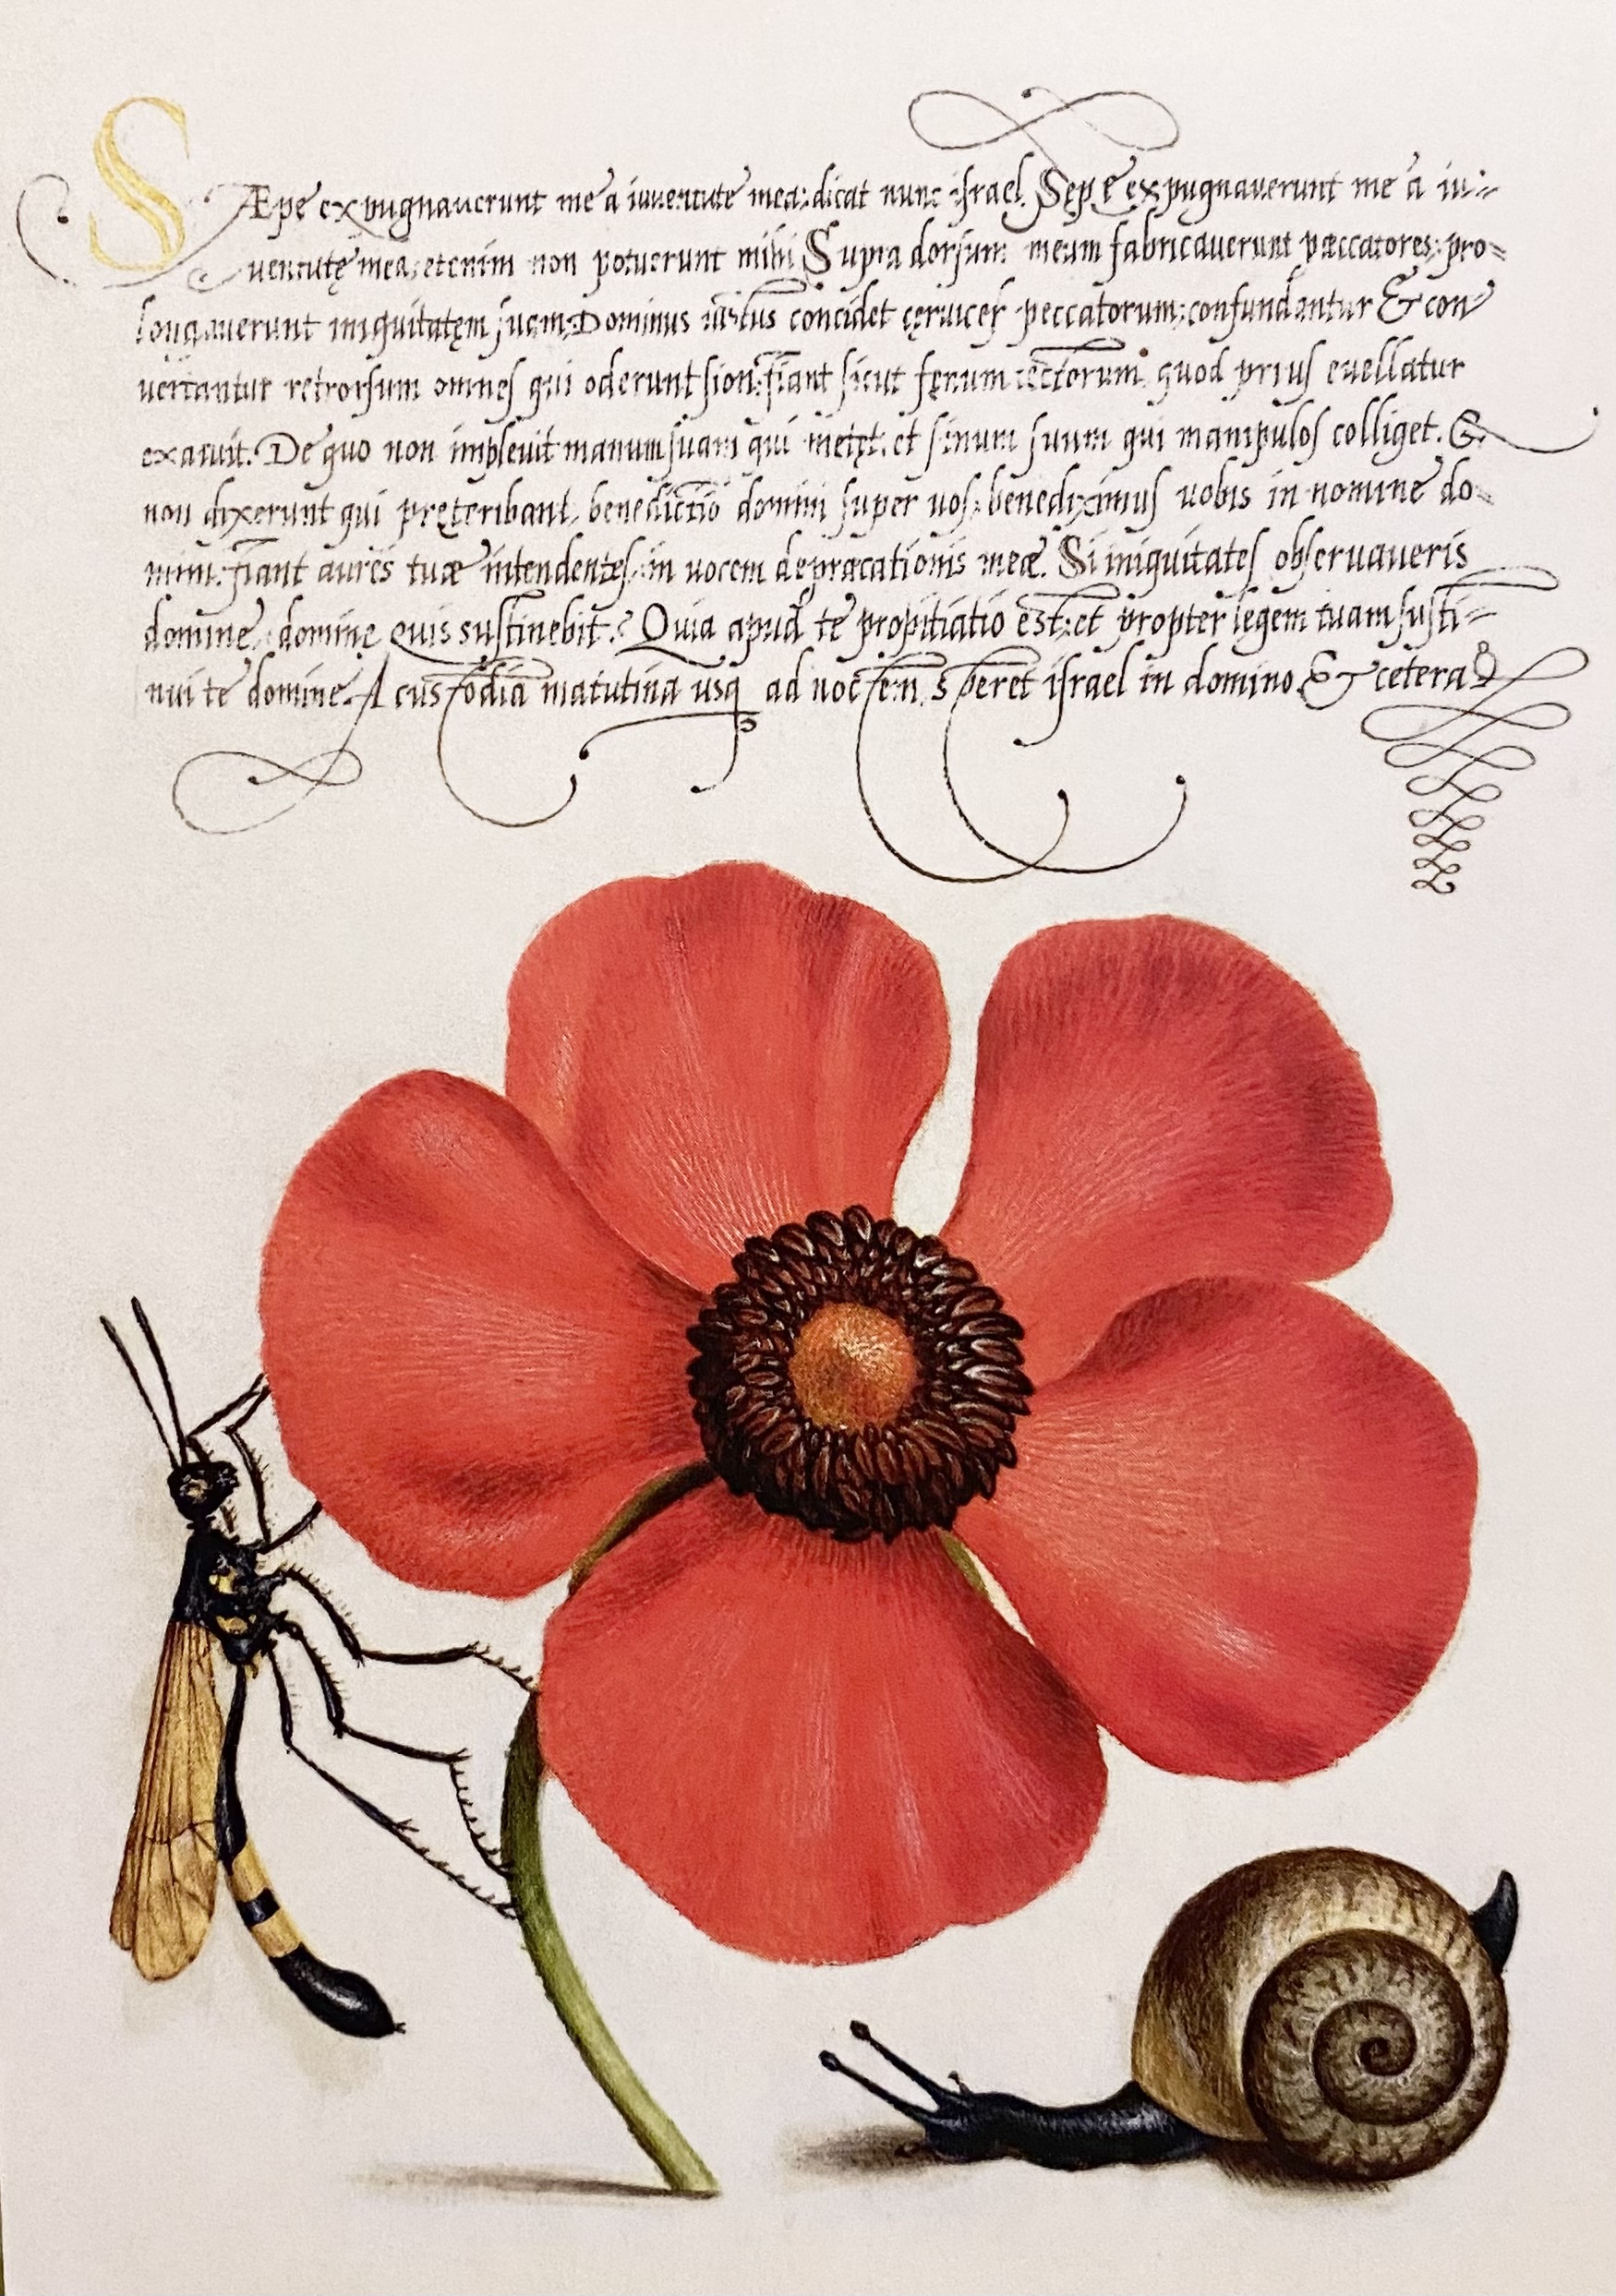 SÆpe expugnaverunt me a iuventute mea: dicat nunc israel. Sepe expugnaverunt me a iu-
ventutę mea: etenim non potuerunt mihi Supra dorsum meum fabricaverunt pæccatores: pro-
longaverunt iniquitatęm suam: Dominus iustus concidet cęrvices peccatorum: confundantur & con
vertantur retrorsum omnes qui oderunt sion: fiant sicut fęnum tectorum, quod prius evellatur
exaruit. De quo non implevit manum suam qui metęt: et sinum suum qui manipulos colliget. &
non dixerunt qui pręteribant, benedictio domini super vos: benediximus vobis in nomine do-
mini. fiant aures tuæ intendentes: in vocem depræcationis meæ. Si iniquitates observaveris
domine: domine quis sustinebit? Quia apud te propitiatio est: et propter legem tuam susti-
nui te domine. A custodia matutina usq ad noctem, speret israel in domino. & cetera